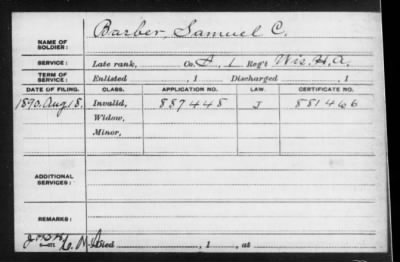 Barber, Samuel C.
NAME OF
SOLDIER:
SERVICE: Late rank, Co. A, 1 Reg't Wis. H.A.
TERM OF
SERVICE: Enlisted , 1 Discharged , 1
DATE OF FILING. CLASS. APPLICATION NO. LAW. CERTIFICATE NO.
1890. Aug 18. Invalid, 887448 J 881466
Widow,
Minor,
ADDITIONAL
SERVICES:
REMARKS:
Died , 1 , at